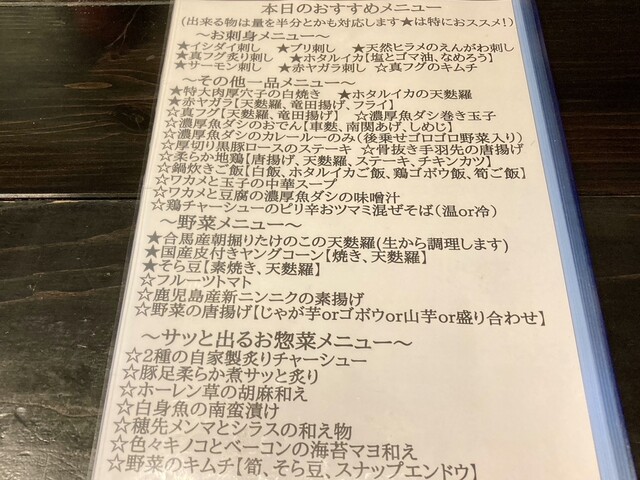 本日のおすすめメニュー
(出来る物は量を半分とかも対応します★は特におススメ!)
～お刺身メニュー～
★イシダイ刺し ★ブリ刺し ★天然ヒラメのえんがわ刺し
★真フグ炙り刺し ★ホタルイカ【塩とゴマ油、なめろう】
★サーモン刺し ★赤ヤガラ刺し ☆真フグのキムチ
～その他一品メニュー～
★特大肉厚穴子の白焼き ★ホタルイカの天麩羅
★赤ヤガラ【天麩羅、竜田揚げ、フライ】
☆真フグ【天麩羅、竜田揚げ】 ☆濃厚魚ダシ巻き玉子
☆濃厚魚ダシのおでん【車麩、南関あげ、しめじ】
☆濃厚魚ダシのカレールーのみ(後乗せゴロゴロ野菜入り)
☆厚切り黒豚ロースのステーキ ☆骨抜き手羽先の唐揚げ
☆柔らか地鶏【唐揚げ、天麩羅、ステーキ、チキンカツ】
☆鍋炊きご飯【白飯、ホタルイカご飯、鶏ゴボウ飯、筍ご飯】
☆ワカメと玉子の中華スープ
☆ワカメと豆腐の濃厚魚ダシの味噌汁
☆鶏チャーシューのピリ辛おツマミ混ぜそば(温or冷)
～野菜メニュー～
★合馬産朝掘りたけのこの天麩羅(生から調理します)
★国産皮付きヤングコーン【焼き、天麩羅】
★そら豆【素焼き、天麩羅】
☆フルーツトマト
☆鹿児島産新ニンニクの素揚げ
☆野菜の唐揚げ【じゃが芋orゴボウor山芋or盛り合わせ】
～サッと出るお惣菜メニュー～
☆2種の自家製炙りチャーシュー
☆豚足柔らか煮サッと炙り
☆ホーレン草の胡麻和え
☆白身魚の南蛮漬け
☆穂先メンマとシラスの和え物
☆色々キノコとベーコンの海苔マヨ和え
☆野菜のキムチ【筍、そら豆、スナップエンドウ】